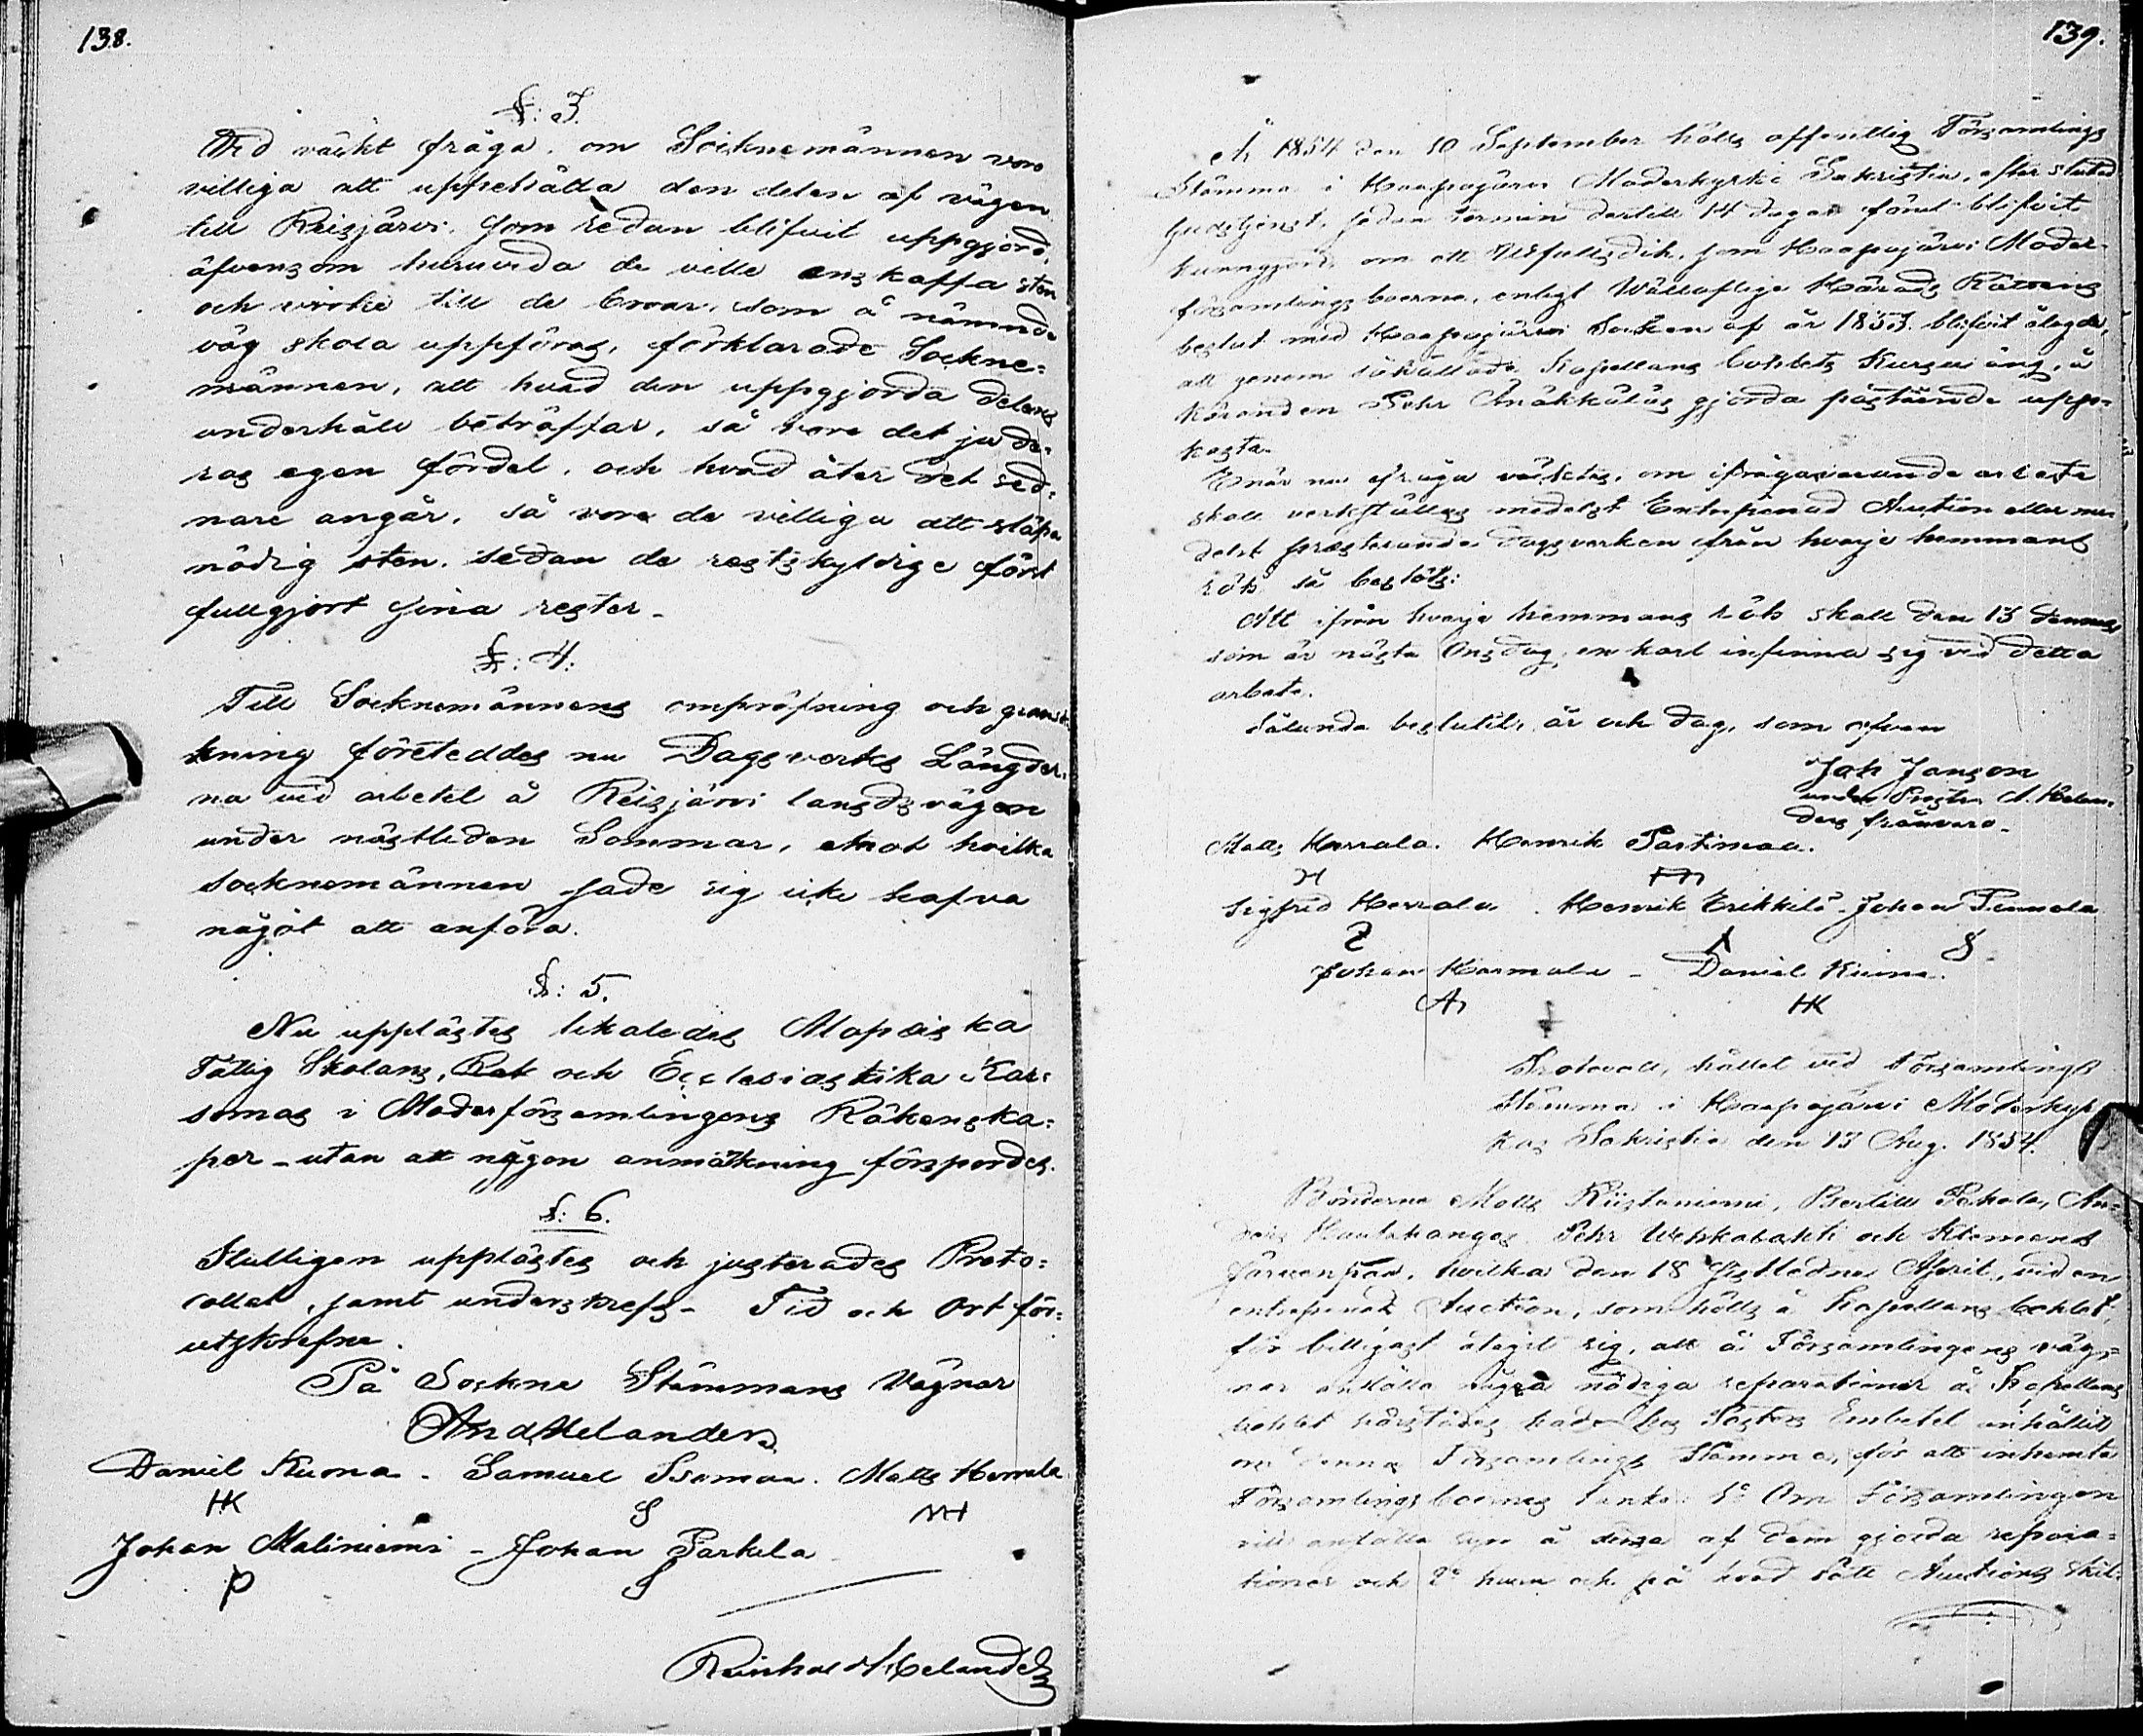 138.
§: 3.
Vid väckt fråga, om Socknemännen voro
villiga att uppehålla den delen af vägen
till Reisjärvi, som redan blifvit uppgjord,
äfvensom huruvida de ville anskaffa sten
och virke till de broar, som å nämnde
väg skola uppföras, förklarade Sockne=
männen, att hvad den uppgjorda delens
underhåll beträffar, så vore det ju de=
ras egen fördel, och hvad åter det sed=
nare angår, så vore de villiga att släpa
nödig sten, sedan de restskyldige först
fullgjort sina rester_
§: 4:
Till Socknemännens ompröfning och gransk
kning företeddes nu Dagsverks Längder
na vid arbetet å Reisjärvi landsvägen
under nästleden Sommar, emot hvilka
socknemännen sade sig icke hafva
något att anföra.
§: 5.
Nu upplästes likaledes
Fattig Skolans, och Ecclesiastika Kas=
sornas i Moderförsamlingens Räkenska=
per _ utan att någon anmärkning förspordes.
§: 6.
Slutligen upplästes och justerades Proto=
collet, samt underskrefs _ Tid och Ort för=
utskrefne.
På Sockne Stämmans Vägnar
And Helander
Daniel Kuona _ Samuel Isomaa. Matts Herrala
HK S MH
Johan Maliniemi _ Johan Parkila
P S
Reinhold Helander
139.
År 1854 den 10 September hölls offentlig Församlings
Stämma i Haapajärvi Moderkyrko Sakristia, efter slutad
Gudstjenst, sedan termin dertill 14 dagar förut blifvit
kunngjord, om ett Utfallsdik, som Haapajärvi Moder=
församlingsboerne, enligt Wällofliga Härads Rättens
beslut med Haapajärvi Socken af år 1853 blifvit ålagde,
att genom såkallade Kapellans bohlets äng, å
käranden Pehr gjorda påstående upp=
kasta.
Enär nu fråga väcktes, om ifrågavarande arbete
skall verkställas medelst Entrepenad Auction eller me
delst presterande dagsverken från hvarje hemmans
rök så beslöts:
Att ifrån hvarje hemmans rök skall den 13 dennes
som är nästa Onsdag, en karl infinna sig vid detta
arbete.
Sålunda beslutit, år och dag, som ofvan
Joh Janson
under Prosten A. Helan=
ders frånvaro_
Matts Herrala. Henrik Pastimaa.
H
Sigfrid Herrala. Henrik Erikkilä. Johan Pennala
S
Johan Karmala _ Daniel Kuona.
HK
Protocoll, hållet vid Församlings
Stämma i Haapajärvi Moderkyr
kas Sakristia den 13 Aug. 1854.
Bönderne Matts Ristaniemi, Bertill Pokela, An=
ders Hautakangas, Pehr Wehkalahti och Klemens
Järvenpää, hvilka den 18 sistledne April, vid en
entrepenad Auction, som hölls å Kapellans bohlet,
för billigast åtagit sig, att å Församlingens väg=
nar anställa några nödiga reparationer å Kapellans
bohlet härstädes, hade hos Pastors Embetet anhållit
om denna Församlings Stämma, för att inhemta
Församlingsboernes tanke: 1° Om Församlingen
vill anställa syn å dessa af dem gjorda repara=
tioner och 2° huru och på hvad sätt Auctions Skil=